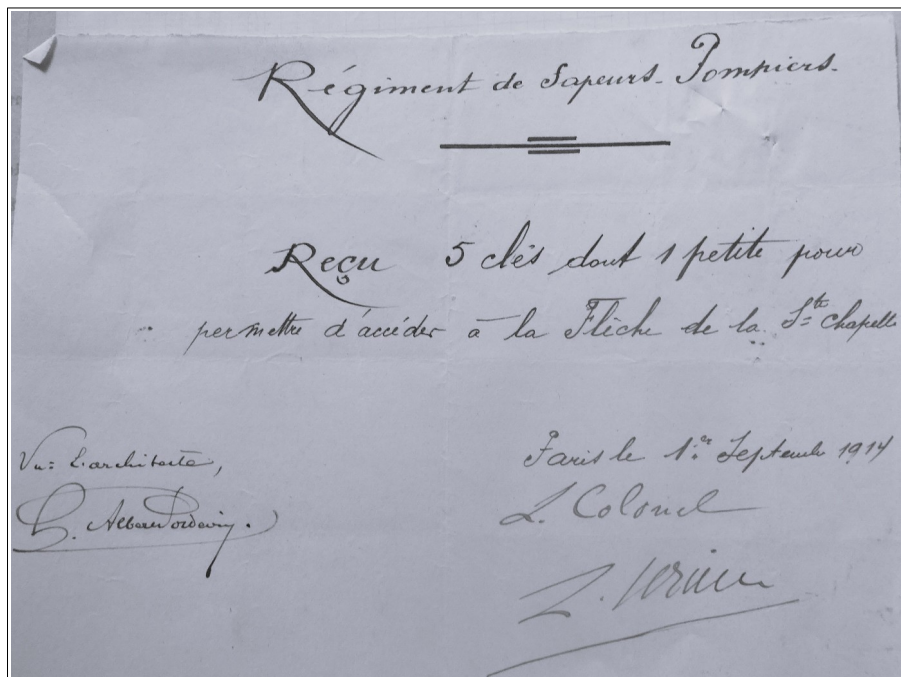 Régiment de Sapeurs-Pompiers-
Reçu 5 clés dont 1 petite pour
permettre d'accéder à la Flèche de la Ste Chapelle
Vu: L'architecte,
Paris le 1er Septembre 1914
L. Colonel